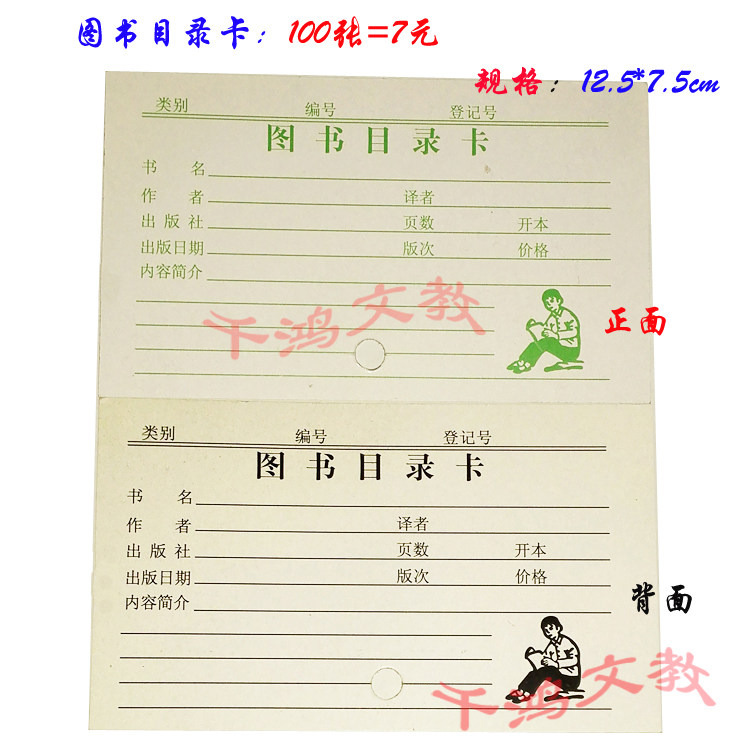 图书目录卡：100张=7元
规格：12.5*7.5cm
类别 编号 登记号
图书目录卡
书名
作者 译者
出版社 页数 开本
出版日期 版次 价格
内容简介
千鸿文教
正面
类别 编号 登记号
图书目录卡
书名
作者 译者
出版社 页数 开本
出版日期 版次 价格
内容简介
背面
千鸿文教